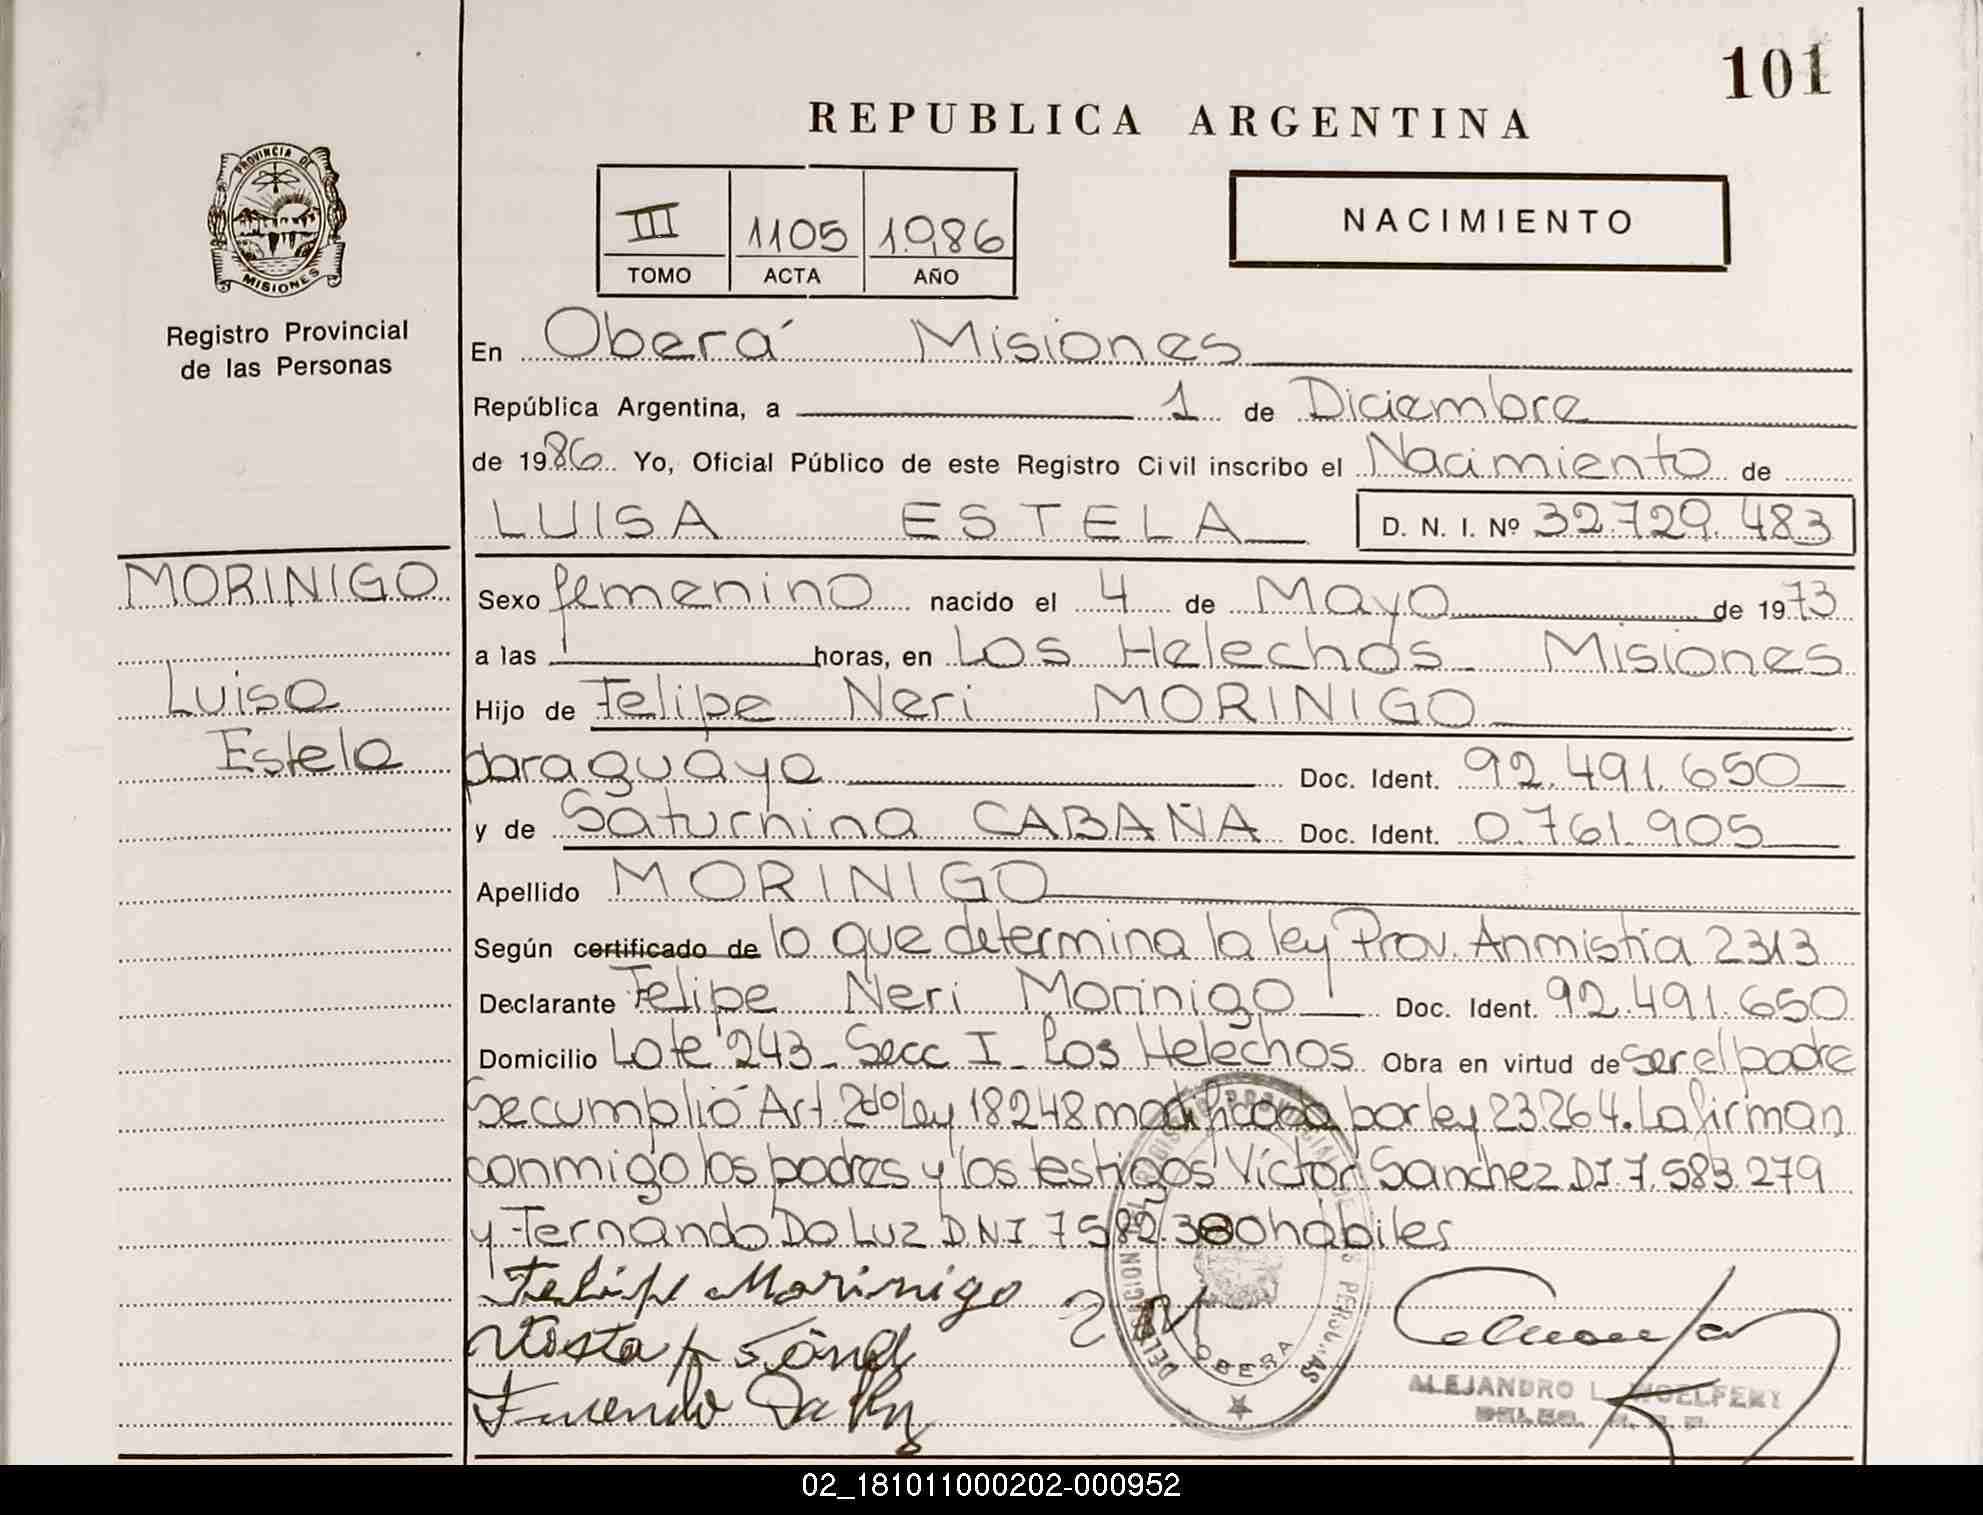 101
REPUBLICA ARGENTINA
PROVINCIA DE
MISIONES
Registro Provincial
de las Personas
III 1105 1986
TOMO ACTA AÑO
NACIMIENTO
En Oberá Misiones
República Argentina, a 1 de Diciembre
de 1986 Yo, Oficial Público de este Registro Civil inscribo el Nacimiento de
LUISA ESTELA D. N. I. Nº 32.729.483
MORINIGO
Luisa
Estela
Sexo femenino nacido el 4 de Mayo de 1973
a las horas, en Los Helechos Misiones
Hijo de Felipe Neri MORINIGO
paraguayo Doc. Ident. 92.491.650
y de Saturnina CABAÑA Doc. Ident. 0.761.905
Apellido MORINIGO
Según certificado de lo que determina la ley Prov. Anmistía 2313
Declarante Felipe Neri Morinigo Doc. Ident. 92.491.650
Domicilio Lote 243 - Secc I - Los Helechos Obra en virtud de ser el padre
Se cumplió Art. 2do ley 18248 modificada por ley 23.264. La firman
conmigo los padres y los testigos Víctor Sanchez DI 7.583.279
y Fernando Da Luz D.N.I. 7582.380 hábiles
Felipe Morinigo
OBERA
ALEJANDRO L.
02_181011000202-000952